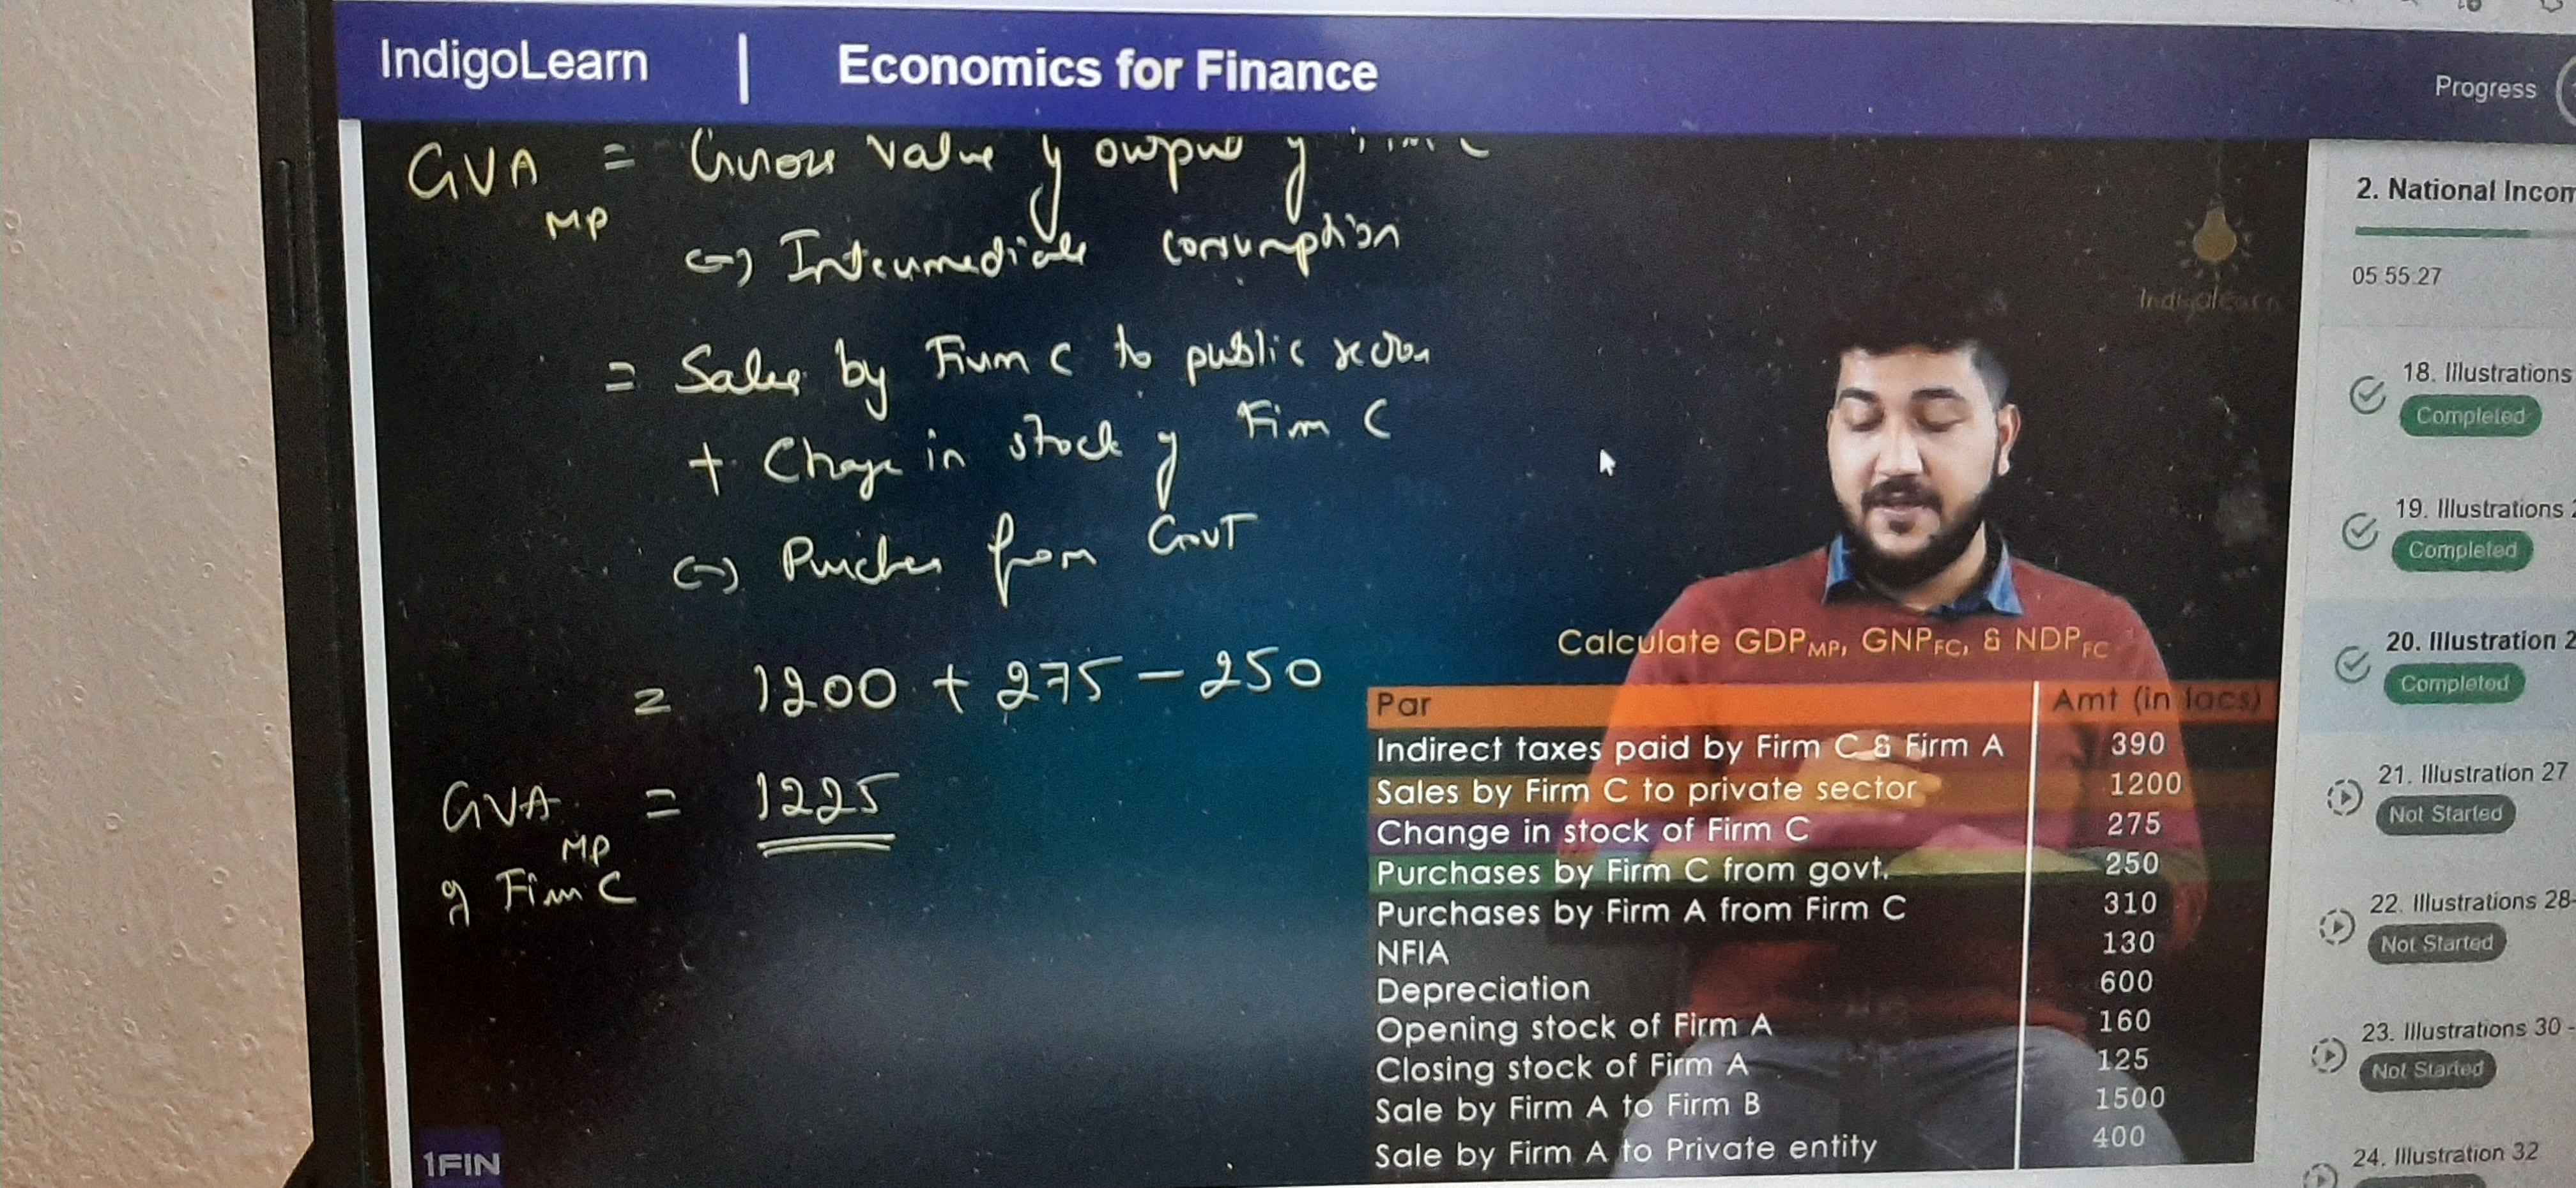 IndigoLearn | Economics for Finance
Progress
GVA MP = Gross value of output of
(-) Intermediate consumption
= Sales by Firm C to public sector
+ Change in stock of Firm C
(-) Purchases from Govt
= 1200 + 275 - 250
GVA MP of Firm C = 1225
Indigolearn
Calculate GDPMP, GNPFC, & NDPFC
Par Amt (in lacs)
Indirect taxes paid by Firm C & Firm A 390
Sales by Firm C to private sector 1200
Change in stock of Firm C 275
Purchases by Firm C from govt. 250
Purchases by Firm A from Firm C 310
NFIA 130
Depreciation 600
Opening stock of Firm A 160
Closing stock of Firm A 125
Sale by Firm A to Firm B 1500
Sale by Firm A to Private entity 400
1FIN
2. National Incom
05:55:27
18. Illustrations
Completed
19. Illustrations 2
Completed
20. Illustration 2
Completed
21. Illustration 27
Not Started
22. Illustrations 28-
Not Started
23. Illustrations 30 -
Not Started
24. Illustration 32